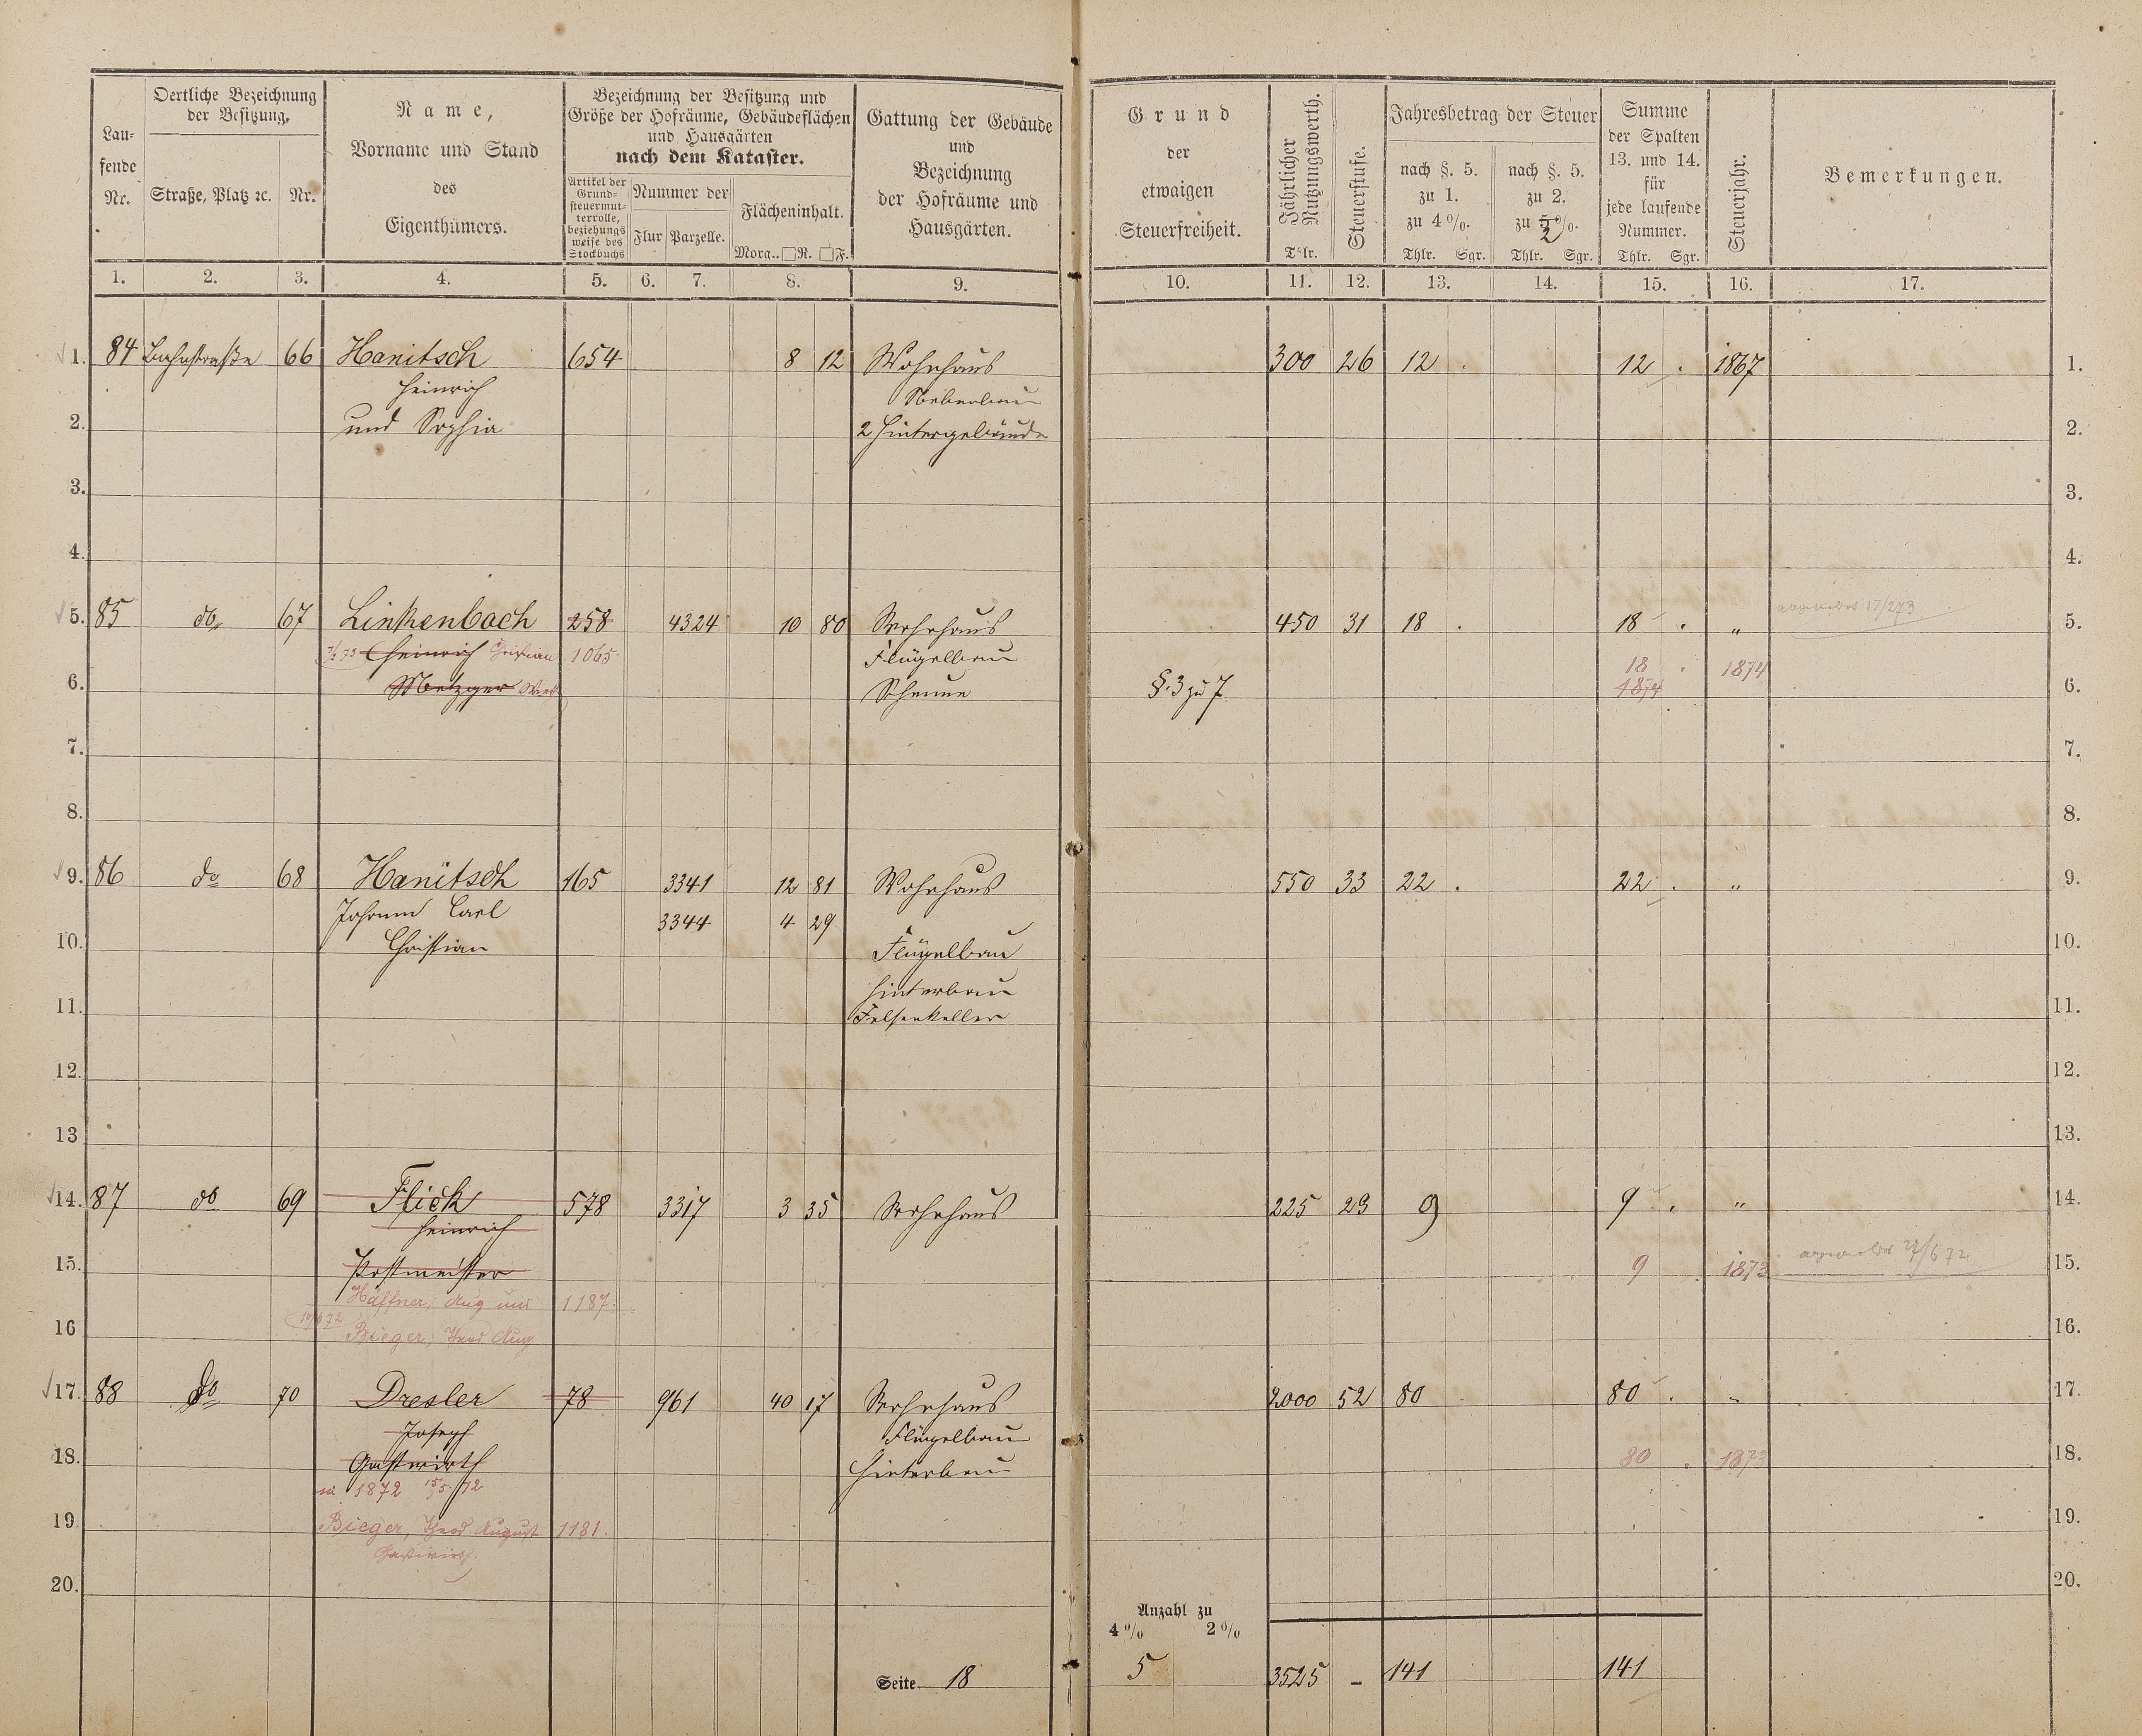 Laufende Nr.
Oertliche Bezeichnung der Besitzung.
Straße, Platz ꝛc.
Nr.
Name,
Vorname und Stand
des
Eigenthümers.
Bezeichnung der Besitzung und
Größe der Hofräume, Gebäudeflächen
und Hausgärten
nach dem Kataster.
Artikel der
Grund-
steuermut-
terrolle,
beziehungs
weise des
Stockbuchs
Nummer der
Flur Parzelle.
Flächeninhalt.
Morg. □R. □F.
Gattung der Gebäude
und
Bezeichnung
der Hofräume und
Hausgärten.
Grund
der
etwaigen
Steuerfreiheit.
Jährlicher
Nutzungswerth.
Thlr.
Steuerstufe.
Jahresbetrag der Steuer
nach §. 5.
zu 1.
zu 4 %.
Thlr. Sgr.
nach §. 5.
zu 2.
zu 5 2 %.
Thlr. Sgr.
Summe
der Spalten
13. und 14.
für
jede laufende
Nummer.
Thlr. Sgr.
Steuerjahr.
Bemerkungen.
1. 2. 3. 4. 5. 6. 7. 8. 9. 10. 11. 12. 13. 14. 15. 16. 17.
1. 84 Bahnstraße 66 Hanitsch 654 8 12 Wohnhaus 300 26 12 . 12 . 1867 1.
Heinrich Nebenbau
2. und Sophia 2 Hintergebäude 2.
3. 3.
4. 4.
5. 85 do 67 Linkenbach 258 4324 10 80 Wohnhaus 450 31 18 . 18 . " 17/273 5.
Heinrich Christian 1065 Flügelbau 18 . 1874
6. Metzger Wirth Scheune §. 3 zu 7 1874 6.
7. 7.
8. 8.
9. 86 do 68 Hanitsch 165 3341 12 81 Wohnhaus 550 33 22 . 22 . " 9.
Johann Carl 3344 4 29
10. Christian Flügelbau 10.
Hinterbau
11. Felsenkeller 11.
12. 12.
13. 13.
14. 87 do 69 Flick 578 3317 3 35 Wohnhaus 225 23 9 9 . " 14.
Heinrich
15. Postmeister 9 1873 27/6 72 15.
Häffner, Aug und 1187.
16. Bieger, Theod Aug 16.
17. 88 do 70 Dresler 78 961 40 17 Wohnhaus 2000 52 80 80 . " 17.
Joseph Flügelbau
18. Gastwirth Hinterbau 80 . 1873 18.
1872 15/5 72
19. Bieger, Theod. August 1181. 19.
Gastwirth.
20. 20.
Anzahl zu
4 % 2 %
Seite 18 5 3525 – 141 141